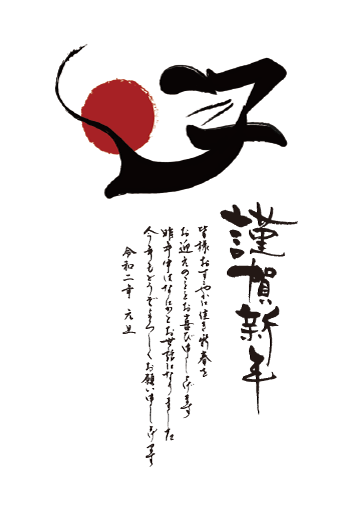 子
謹賀新年
皆様おすこやかに佳き新春を
お迎えのこととお喜び申し上げます
昨年中はなにかとお世話になりました
今年もどうぞよろしくお願い申し上げます
令和二年 元旦